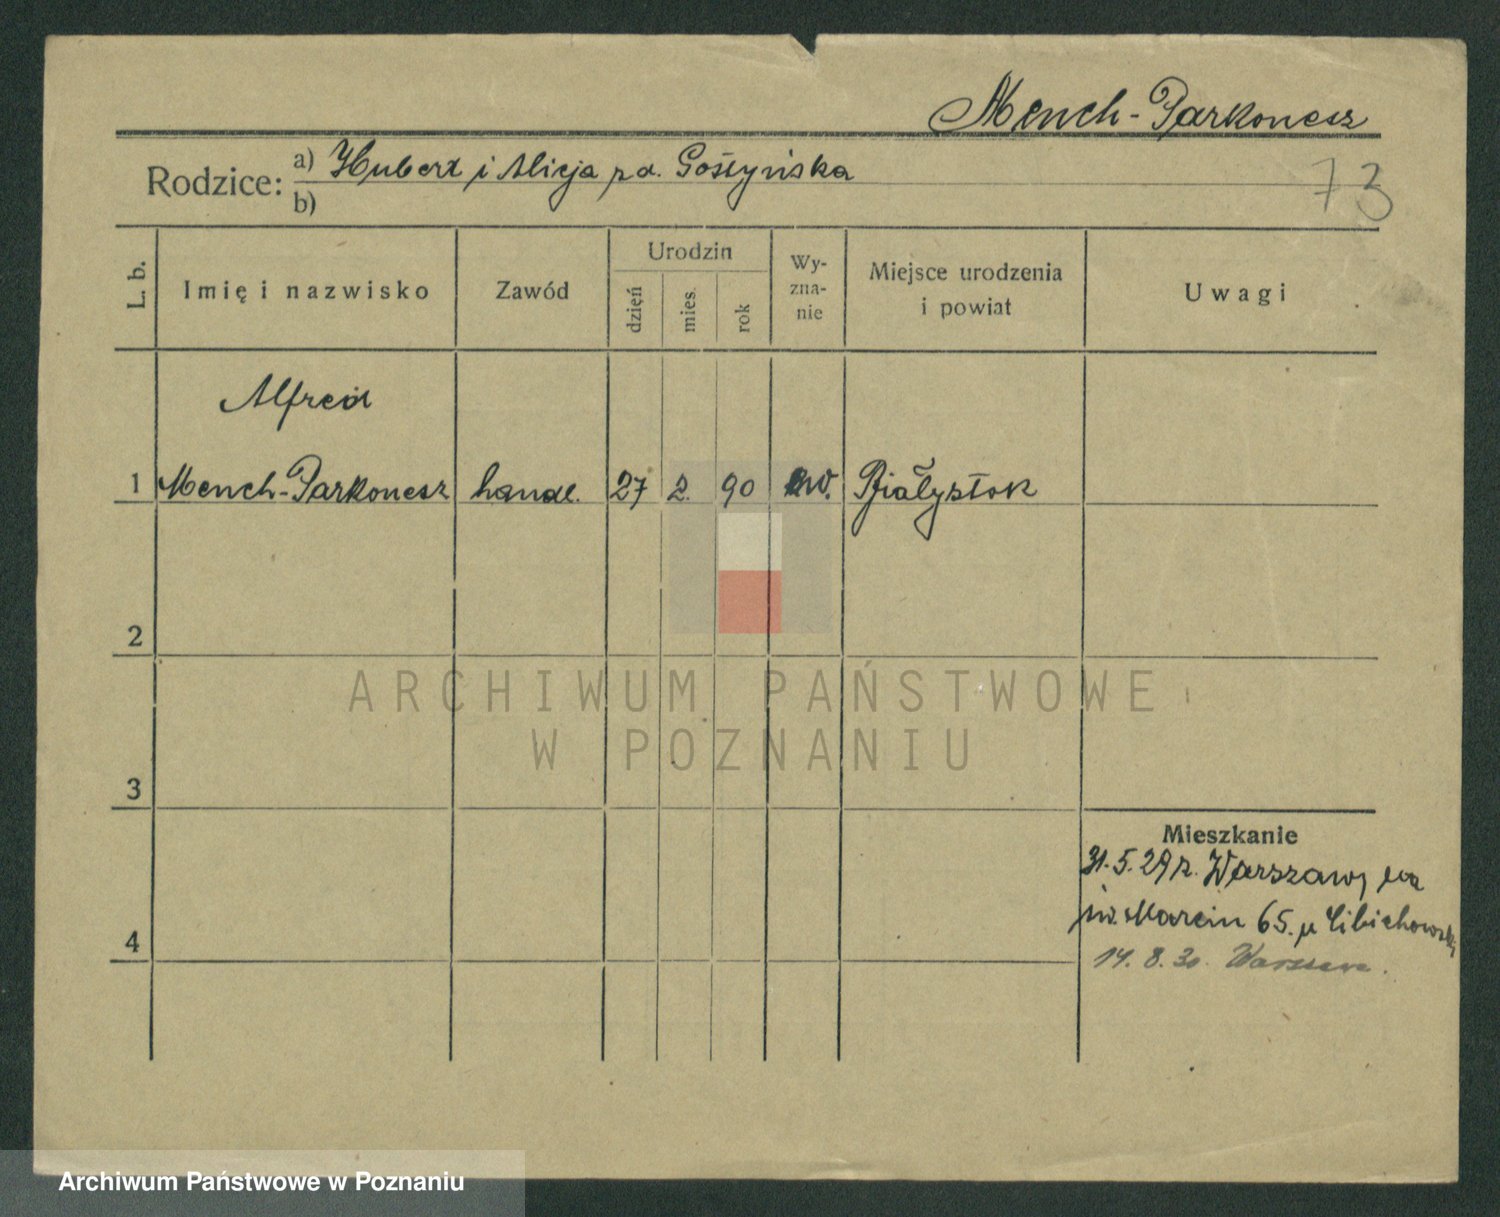 Mench-Parkonesz
73
Rodzice: a) Hubert i Alicja z d. Gostyńska
b)
L. b.
Imię i nazwisko
Zawód
Urodzin
dzień
mies.
rok
Wy-
zna-
nie
Miejsce urodzenia
i powiat
Uwagi
Alfred
1 Mench-Parkonesz handl. 27 2. 90 ew. Białystok
2
3
4
Mieszkanie
31.5.29 z Warszawy na
św. Marcin 65. u Cibichowski
14. 8. 30. Warszawa.
ARCHIWUM PAŃSTWOWE
W POZNANIU
Archiwum Państwowe w Poznaniu